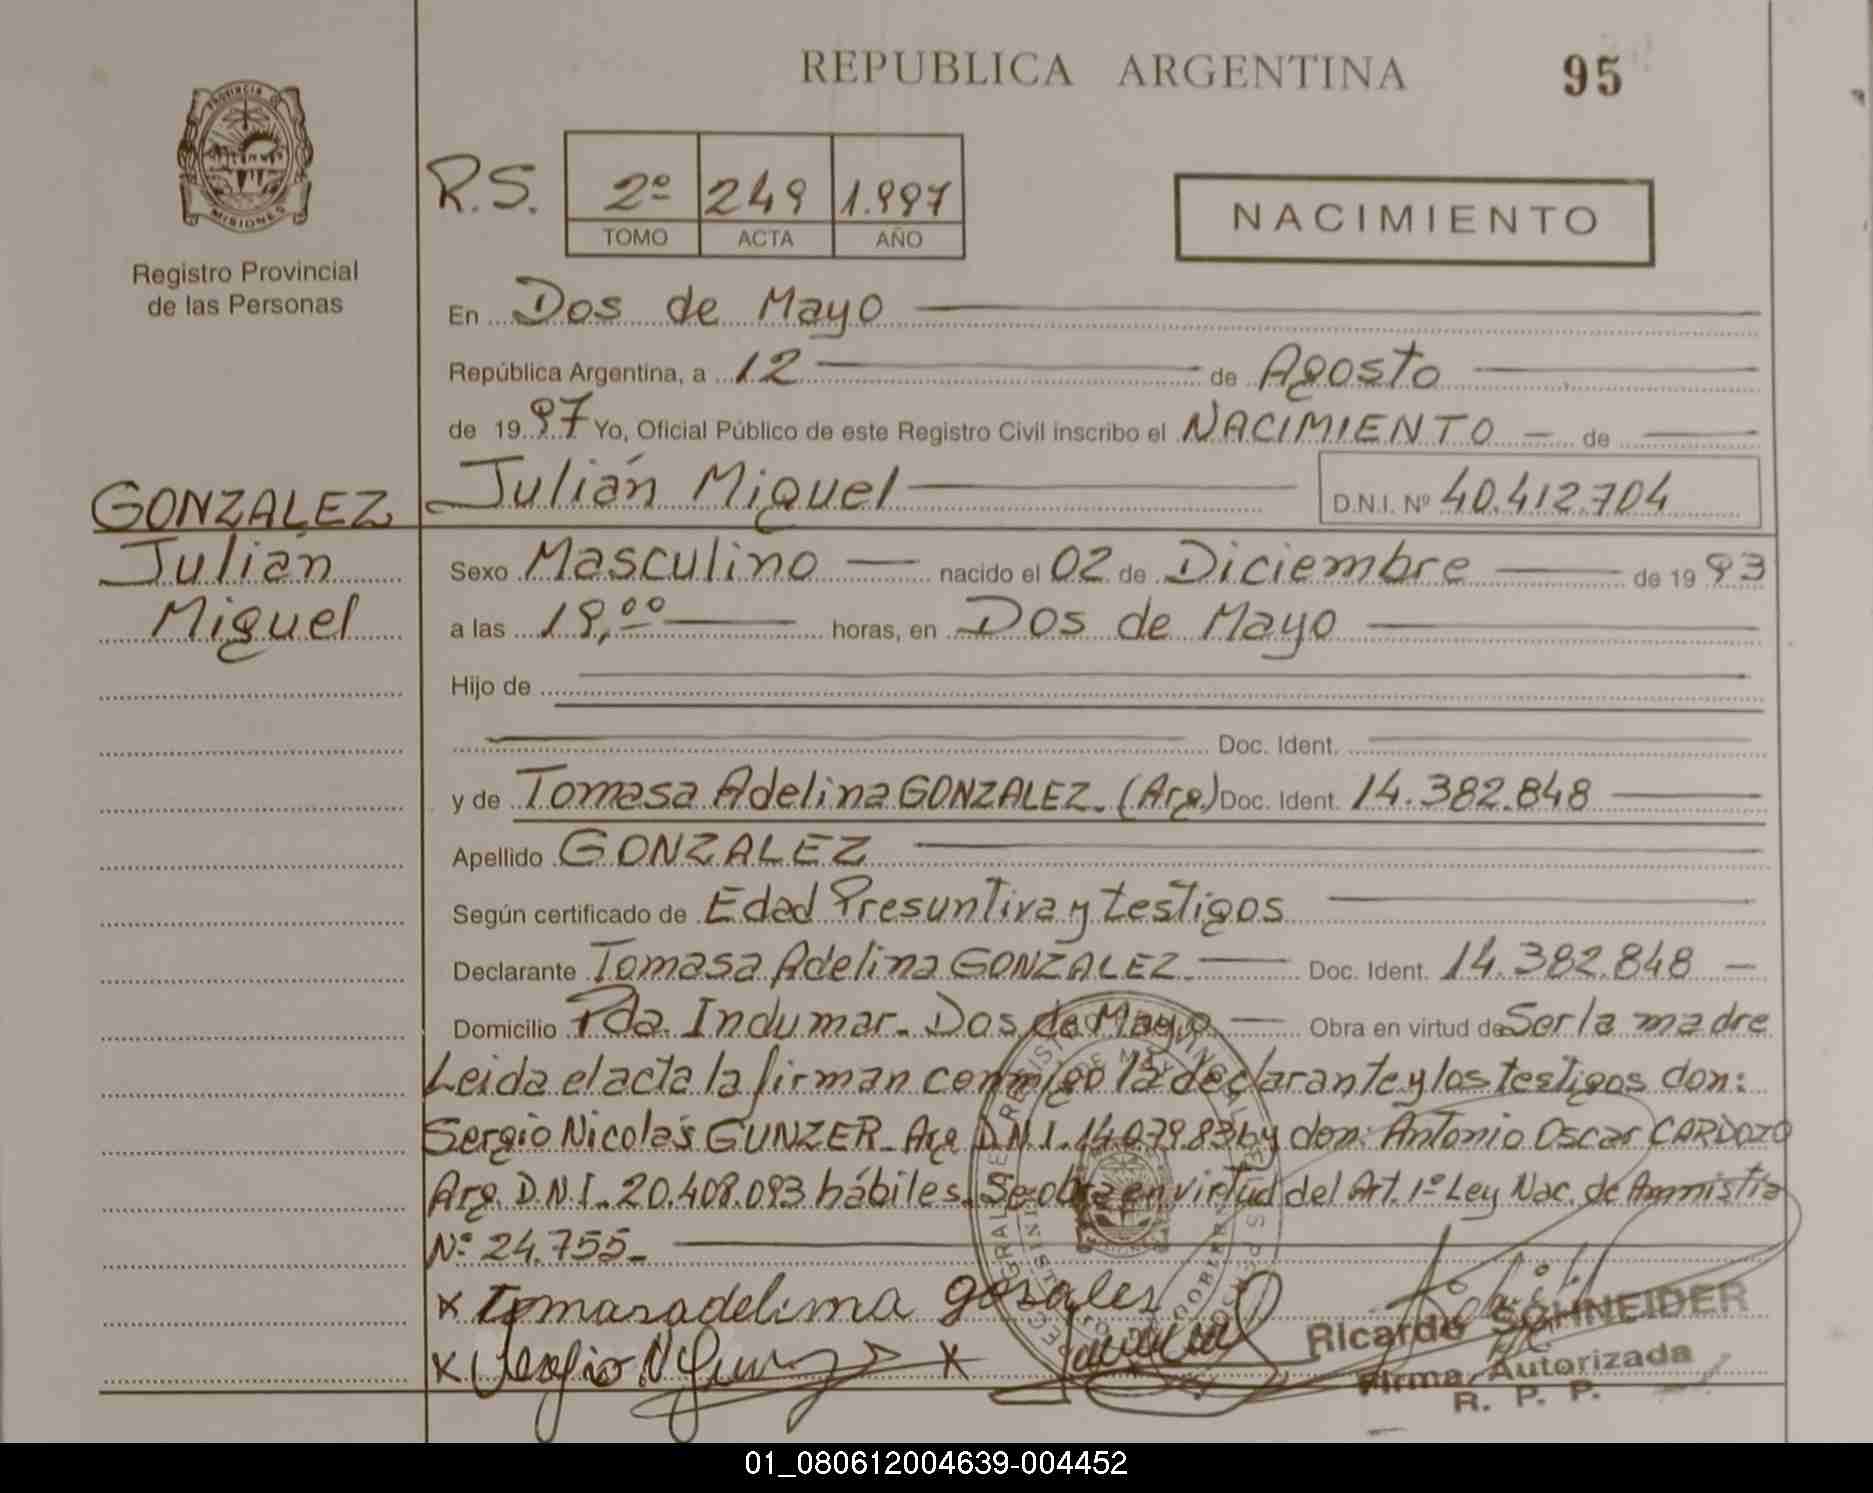 REPUBLICA ARGENTINA 95
PROVINCIA DE
MISIONES
Registro Provincial
de las Personas
R.S. 2º 249 1.997
TOMO ACTA AÑO
NACIMIENTO
En Dos de Mayo
República Argentina, a 12 de Agosto
de 1997 Yo, Oficial Público de este Registro Civil inscribo el NACIMIENTO - de
GONZALEZ
Julián
Miguel
Julián Miguel D.N.I. Nº 40.412.704
Sexo Masculino nacido el 02 de Diciembre de 1993
a las 19,00 horas, en Dos de Mayo
Hijo de
Doc. Ident.
y de Tomasa Adelina GONZALEZ. (Arg) Doc. Ident. 14.382.848
Apellido GONZALEZ
Según certificado de Edad Presuntiva y testigos
Declarante Tomasa Adelina GONZALEZ. Doc. Ident. 14.382.848 -
Domicilio Pda. Indumar. Dos de Mayo Obra en virtud de Ser la madre
Leida el acta la firman conmigo la declarante y los testigos don:
Sergio Nicolás GUNZER. Arg. D.N.I. 14.079.83 y don: Antonio Oscar CARDOZO
Arg. D.N.I. 20.408.093 hábiles. Se obra en virtud del Art. 1º Ley Nac. de Amnistia
Nº 24.755.
x Tomasadelima gosales
x Sergio N Gun x
Ricardo SCHNEIDER
Firma Autorizada
R. P. P.
01_080612004639-004452